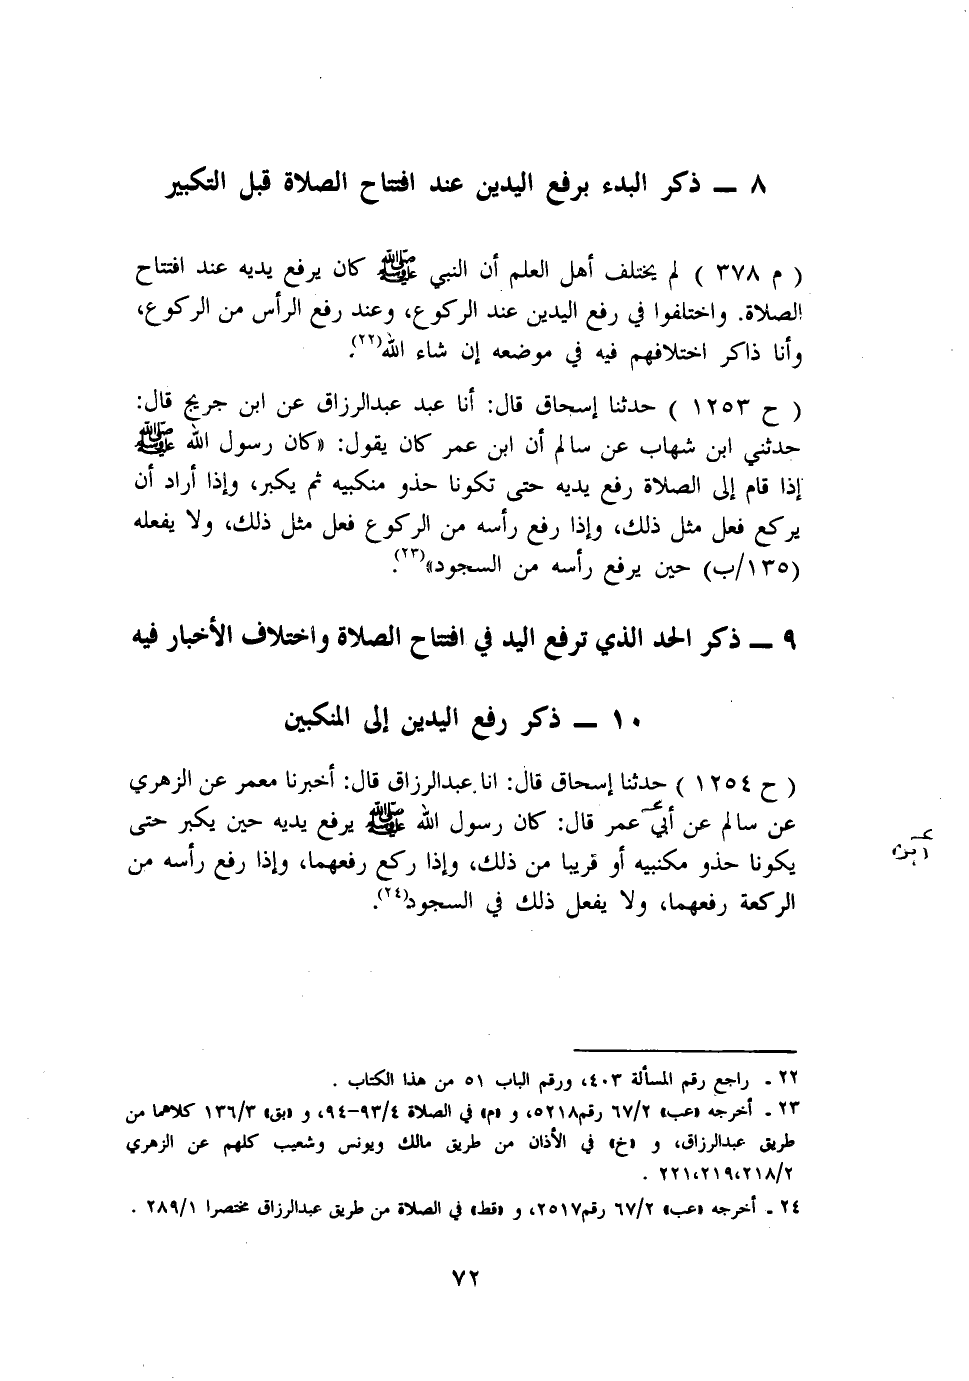 ٨ ــ ذكر البدء برفع اليدين عند افتتاح الصلاة قبل التكبير
( م ٣٧٨ ) لم يختلف أهل العلم أن النبي ﷺ كان يرفع يديه عند افتتاح
الصلاة. واختلفوا في رفع اليدين عند الركوع، وعند رفع الرأس من الركوع،
وأنا ذاكر اختلافهم فيه في موضعه إن شاء الله(٢٢).
( ح ١٢٥٣ ) حدثنا إسحاق قال: أنا عبد عبدالرزاق عن ابن جريج قال:
حدثني ابن شهاب عن سالم أن ابن عمر كان يقول: «كان رسول الله ﷺ
إذا قام إلى الصلاة رفع يديه حتى تكونا حذو منكبيه ثم يكبر، وإذا أراد أن
يركع فعل مثل ذلك، وإذا رفع رأسه من الركوع فعل مثل ذلك، ولا يفعله
(١٣٥/ب) حين يرفع رأسه من السجود»(٢٣).
٩ ــ ذكر الحد الذي ترفع اليد في افتتاح الصلاة واختلاف الأخبار فيه
١٠ ــ ذكر رفع اليدين إلى المنكبين
( ح ١٢٥٤ ) حدثنا إسحاق قال: انا عبدالرزاق قال: أخبرنا معمر عن الزهري
عن سالم عن أبي عمر قال: كان رسول الله ﷺ يرفع يديه حين يكبر حتى
ابن
يكونا حذو مكنبيه أو قريبا من ذلك، وإذا ركع رفعهما، وإذا رفع رأسه من
الركعة رفعهما، ولا يفعل ذلك في السجود(٢٤).
٢٢ ـ راجع رقم المسألة ٤٠٣، ورقم الباب ٥١ من هذا الكتاب .
٢٣ ـ أخرجه «عب» ٦٧/٢ رقم٥٢١٨، و «م» في الصلاة ٩٣/٤–٩٤، و «بق» ١٣٦/٣ كلاهما من
طريق عبدالرزاق، و «خ» في الأذان من طريق مالك ويونس وشعيب كلهم عن الزهري
٢١٨/٢،٢١٩،٢٢١ .
٢٤ ـ أخرجه «عب» ٦٧/٢ رقم٢٥١٧، و «قط» في الصلاة من طريق عبدالرزاق مختصرا ٢٨٩/١ .
٧٢